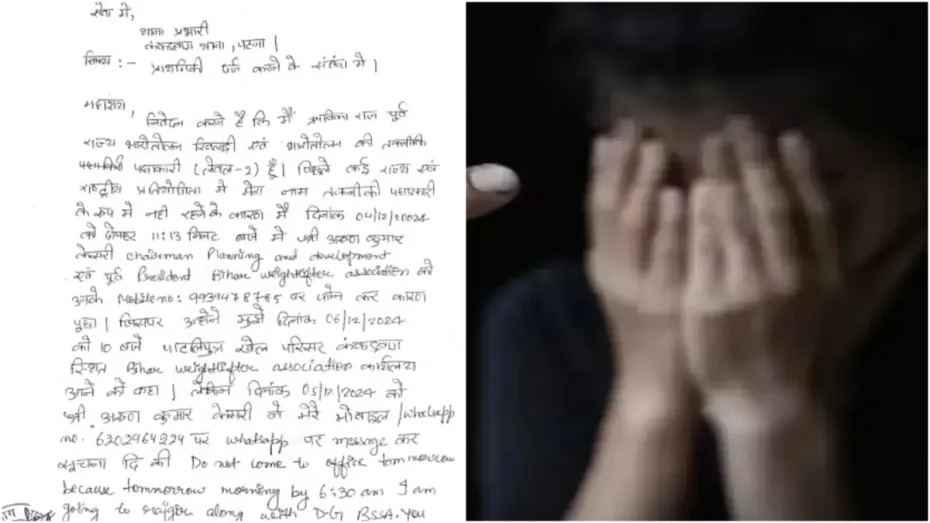 सेवा में,
थाना प्रभारी
कंकड़बाग थाना, पटना।
विषय :- प्राथमिकी दर्ज करने के संबंध में।
महाशय,
निवेदन करते है कि मैं राज पूर्व
राज्य भारोतोलन खिलाड़ी एवं भारोतोलन की तकनीकि
पदाधिकारी (लेवल-2) हूँ। पिछले कई राज्य एवं
राष्ट्रीय प्रतियोगिता में मेरा नाम तकनीकी पदाधिकारी
के रूप में नही रहने के कारण मैं दिनांक 04/12/2024
को दोपहर 11:13 मिनट बजे मे श्री अरुण कुमार
केसरी chairman Planning and development
एवं पूर्व President Bihar weightlifter association को
उनके Mobile no: 9939478785 पर फोन कर कारण
पूछा। जिसपर उन्होंने मुझे दिनांक 06/12/2024
को 10 बजे पाटलिपुत्र खेल परिसर कंकड़बाग
स्थित Bihar weightlifter association कार्यालय
आने को कहा। लेकिन दिनांक 05/12/2024 को
श्री अरुण कुमार केसरी ने मेरे मोबाइल /whatsapp
no. 6202964224 पर whatsapp पर message कर
सूचना दि की Do not come to office tommorrow
because tommorrow morning by 6:30 am I am
going to along with DG BSSA. You